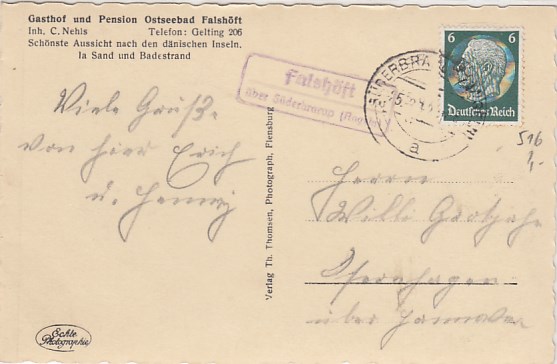 Gasthof und Pension Ostseebad Falshöft
Inh. C. Nehls Telefon: Gelting 206
Schönste Aussicht nach den dänischen Inseln.
Ia Sand und Badestrand
Falshöft
über Süderbrarup
SÜDERBRA
a
6 6
Deutsches Reich
516
1,-
Viele Grüße
von hier Erich
u. Henny
Verlag Th. Thomsen, Photograph, Flensburg
Herrn
Willi
Isernhagen
über Hannover
Echte
Photographie